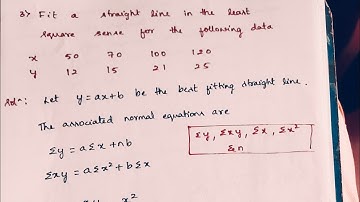 3) Fit a straight line in the least
square sense for the following data
x 50 70 100 120
y 12 15 21 25
Solⁿ: Let y = ax+b be the best fitting straight line.
The associated normal equations are
Σy = aΣx + nb
Σxy = aΣx² + bΣx
Σy, Σxy, Σx, Σx²
& n
x²